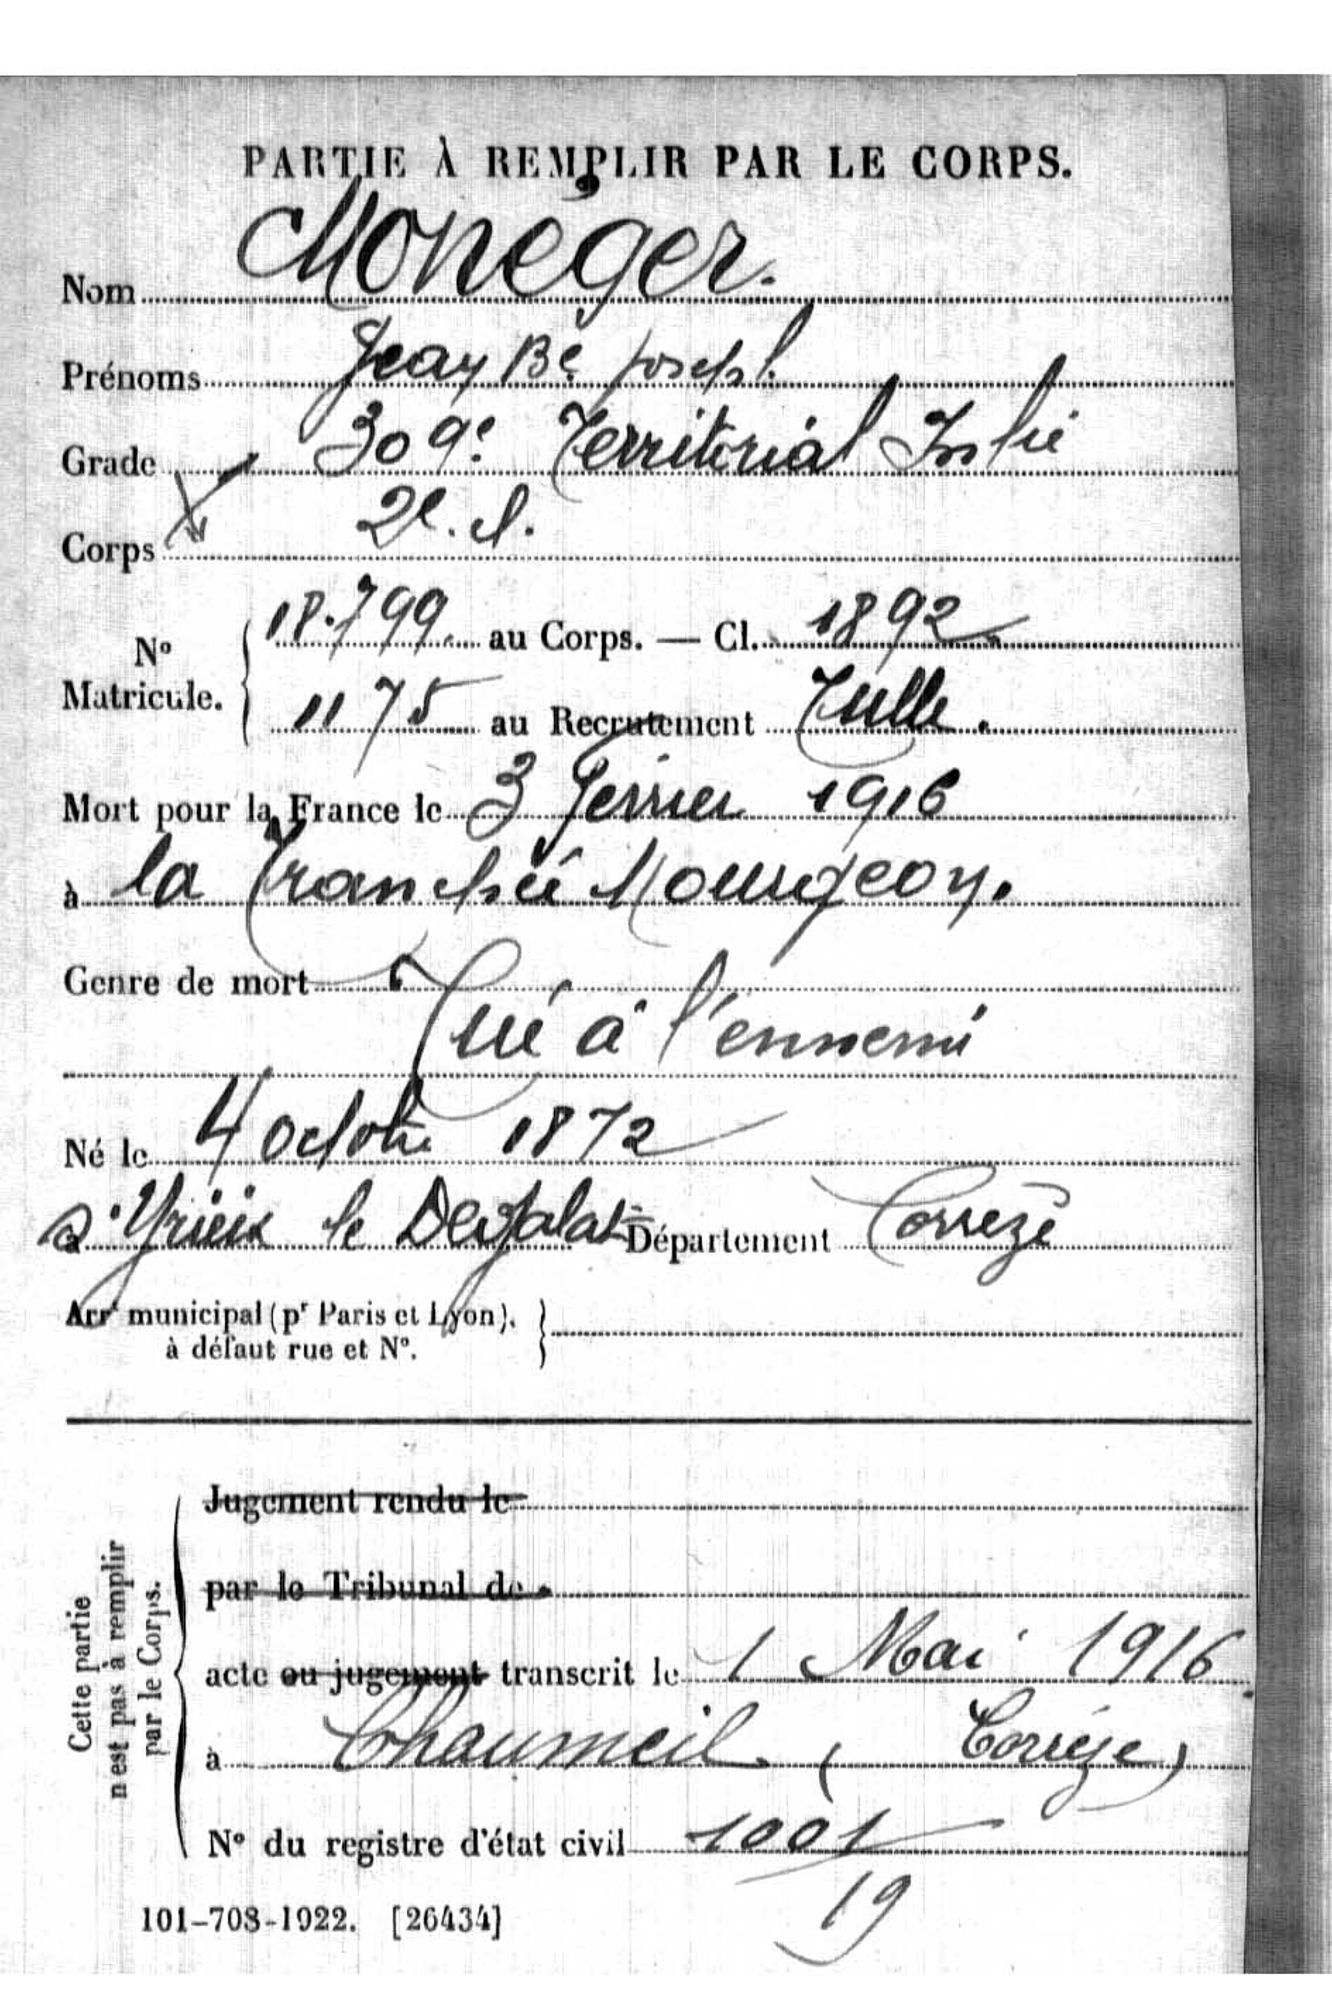 PARTIE À REMPLIR PAR LE CORPS.
Nom Monéger.
Prénoms Jean Bte Joseph
Grade 309e Territorial Inf ie
Corps 2e. cl.
N° Matricule. 18.799. au Corps. — Cl. 1892
1175 au Recrutement Tulle.
Mort pour la France le 3 Février 1916
à la Tranchée Mourgeon.
Genre de mort Tué à l'ennemi
Né le 4 octobre 1872
à St Yrieix le Dejalat Département Corrèze
Arrt municipal (pr Paris et Lyon),
à défaut rue et N°.
Jugement rendu le
par le Tribunal de
acte ou jugement transcrit le 1 Mai 1916
à Chaumeil (Corrèze)
N° du registre d'état civil 1001
19
Cette partie
n'est pas à remplir
par le Corps.
101-708-1922. [26434]